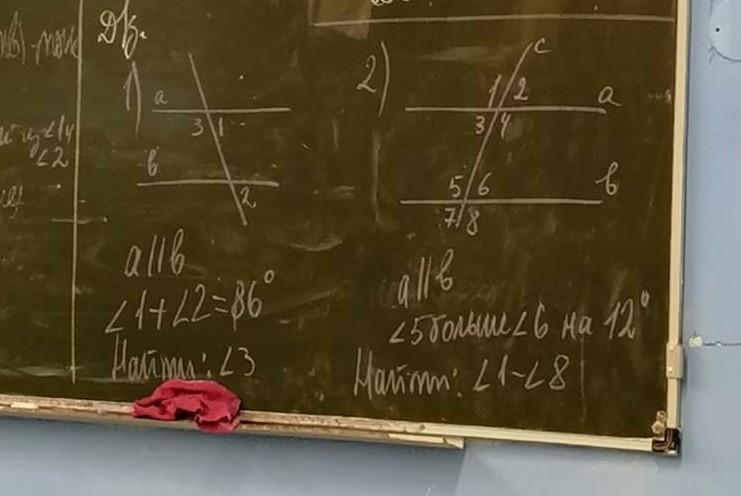 Д/з.
1)
a
3 1
b
2
a || b
∠1+∠2=86°
Найти: ∠3
2)
c
1 2
a
3 4
5 6
b
7 8
a || b
∠5 больше ∠6 на 12°
Найти: ∠1-∠8
∠1
∠2